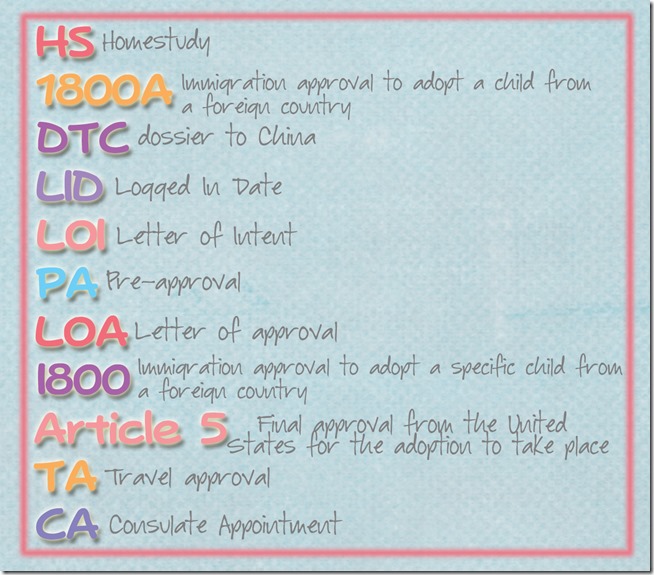 HS Homestudy
1800A Immigration approval to adopt a child from
a foreign country
DTC dossier to China
LID Logged In Date
LOI Letter of Intent
PA Pre-approval
LOA Letter of approval
1800 Immigration approval to adopt a specific child from
a foreign country
Article 5 Final approval from the United
States for the adoption to take place
TA Travel approval
CA Consulate Appointment